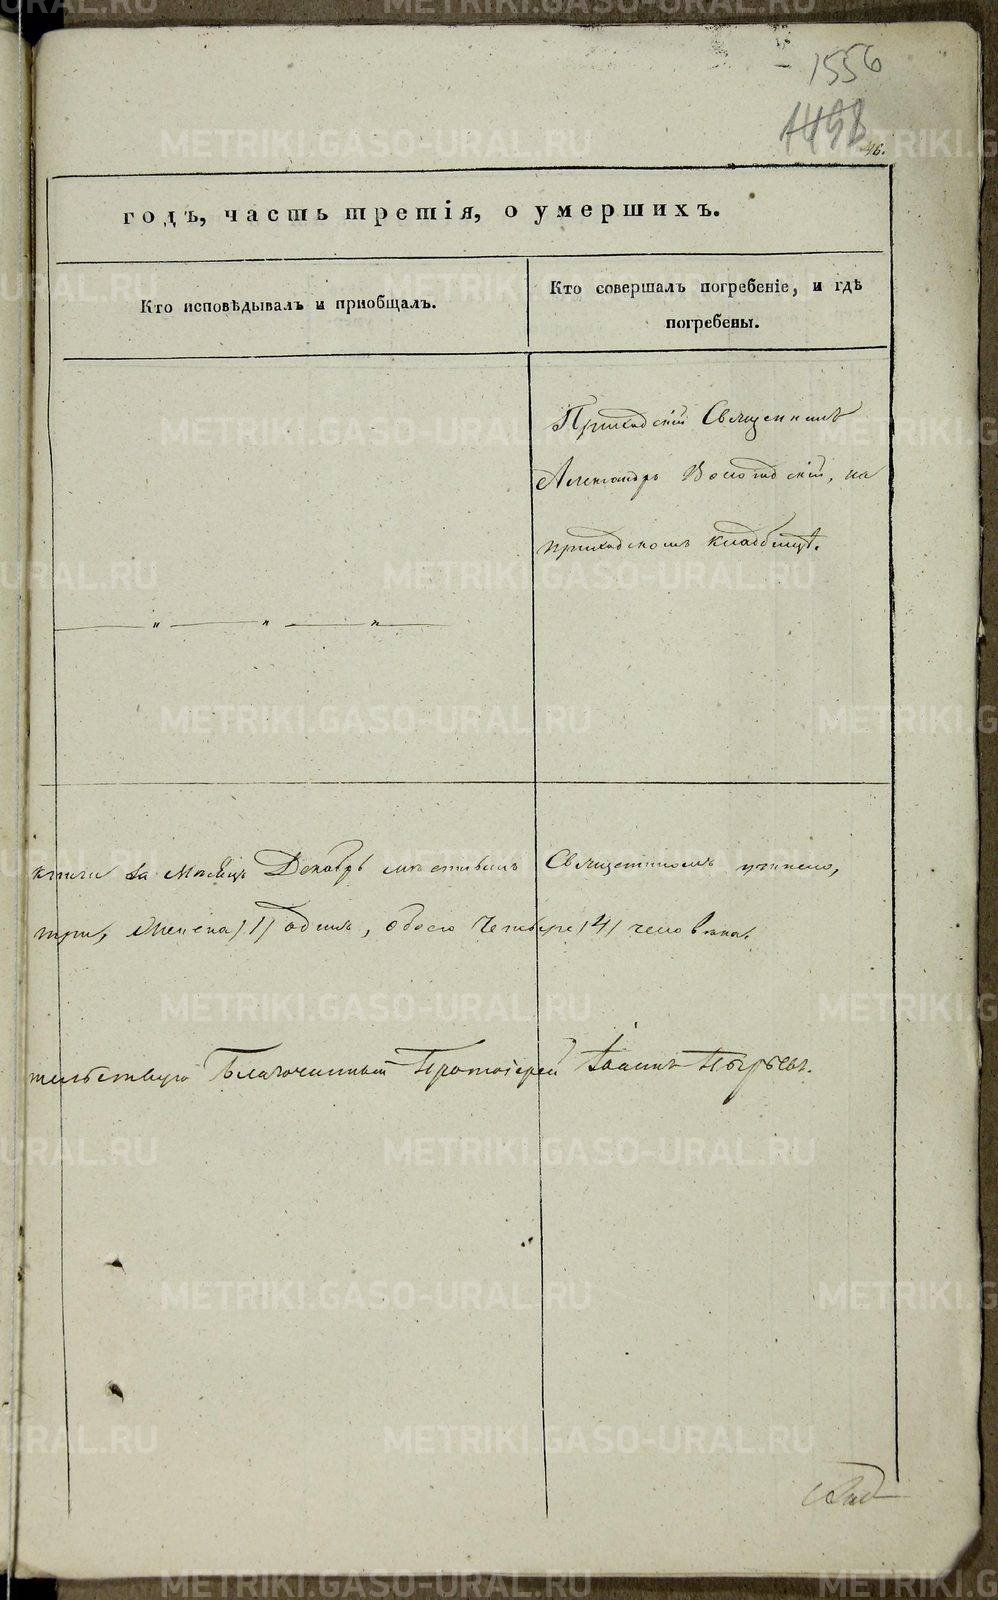 1556
1498
46.
годъ, часть третія, о умершихъ.
Кто исповѣдывалъ и приобщалъ.
Кто совершалъ погребеніе, и гдѣ
погребены.
Приходскій Священникъ
Александръ Вологодскій, на
приходскомъ кладбищѣ.
— „ — „ — „ —
за Мѣсяцъ Декабрь Священникомъ
три, Женска /1/ одинъ, обоего Четыре /4/ человѣка.
тельствую Благочинный Протоіерей Іоаннъ
METRIKI.GASO-URAL.RU